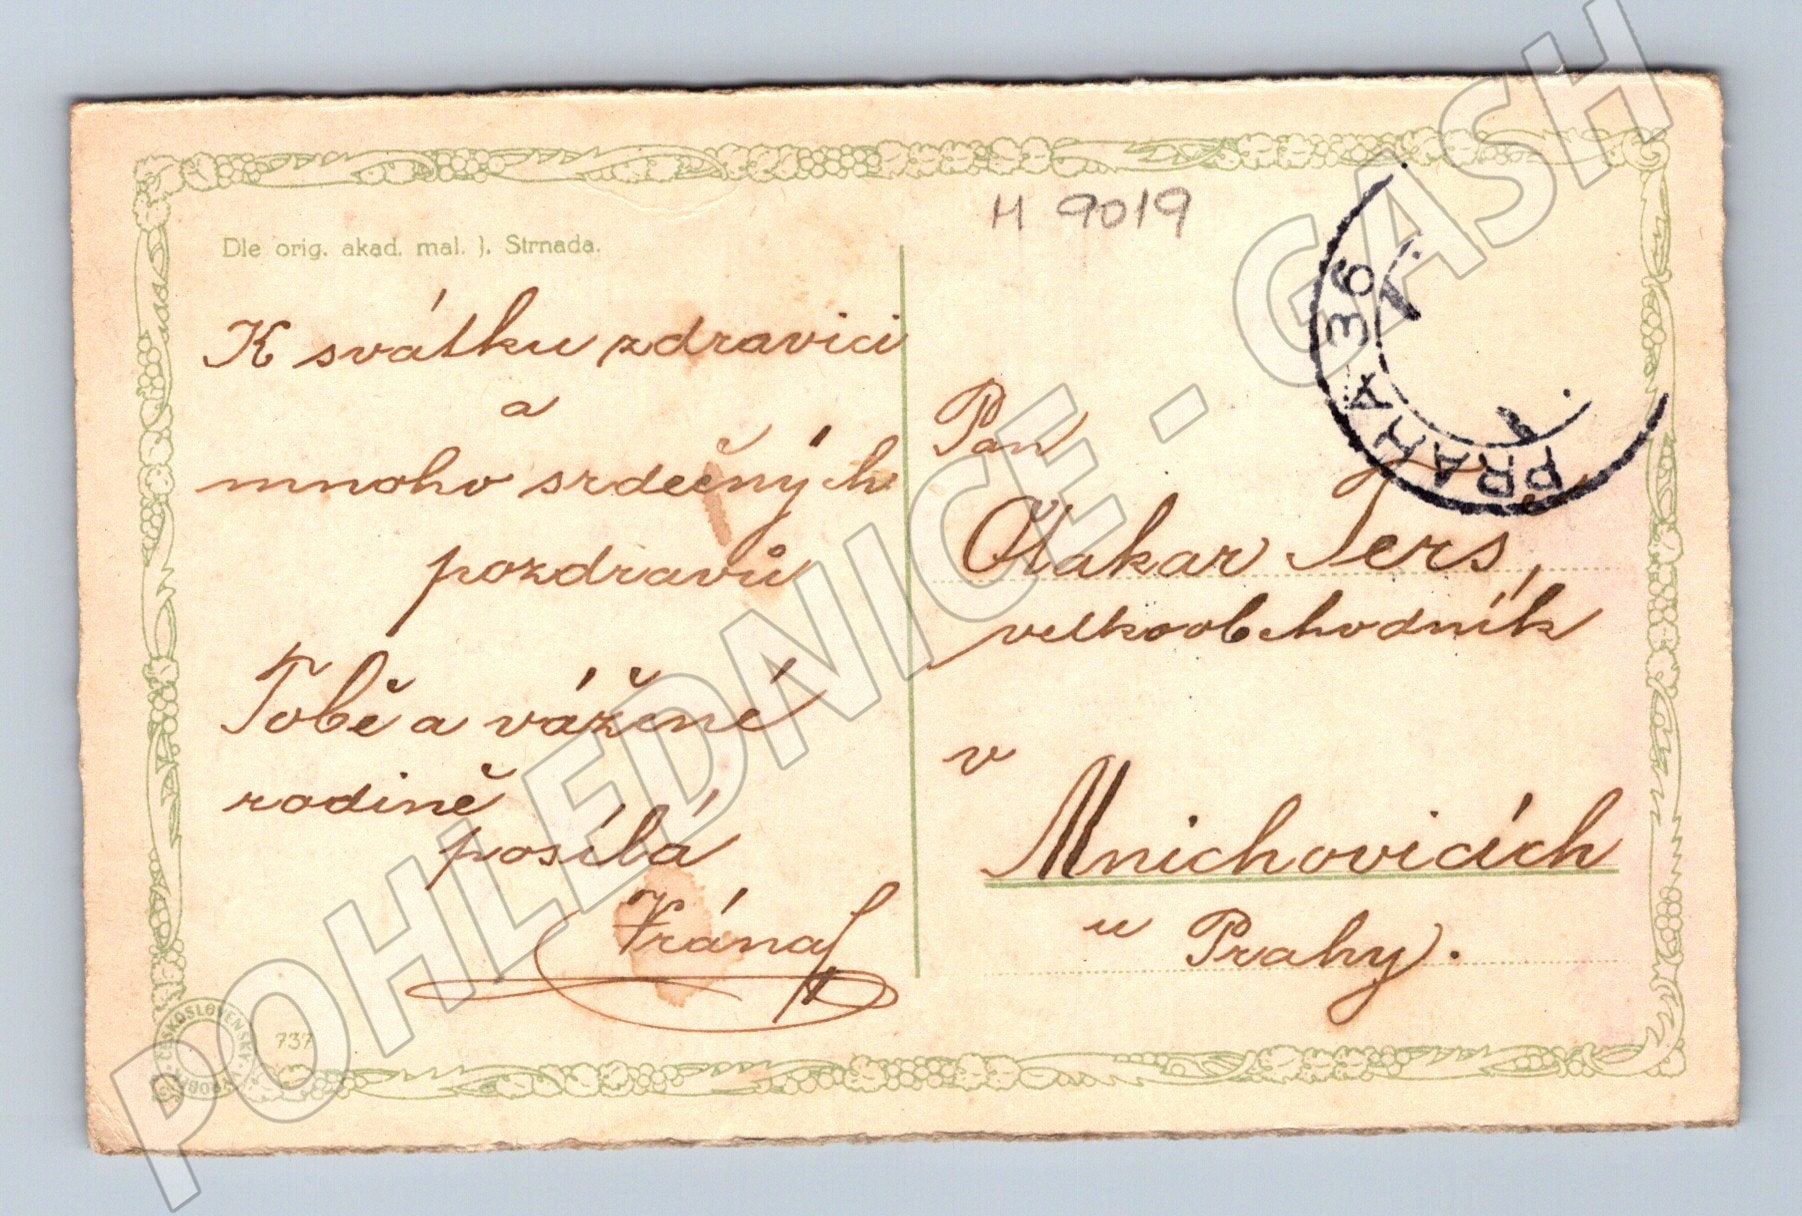 H 9019
Dle orig. akad. mal. J. Strnada.
K svátku zdravici
a
mnoho srdečných
pozdravů
Tobě a vážené
rodině
posílá
Vrána
Pan
Otakar Šers,
velkoobchodník
v
Mnichovicích
u Prahy.
PRAHA 36
1.
ČESKOSLOVENSKÝ
737
POHLEDNICE - GASH